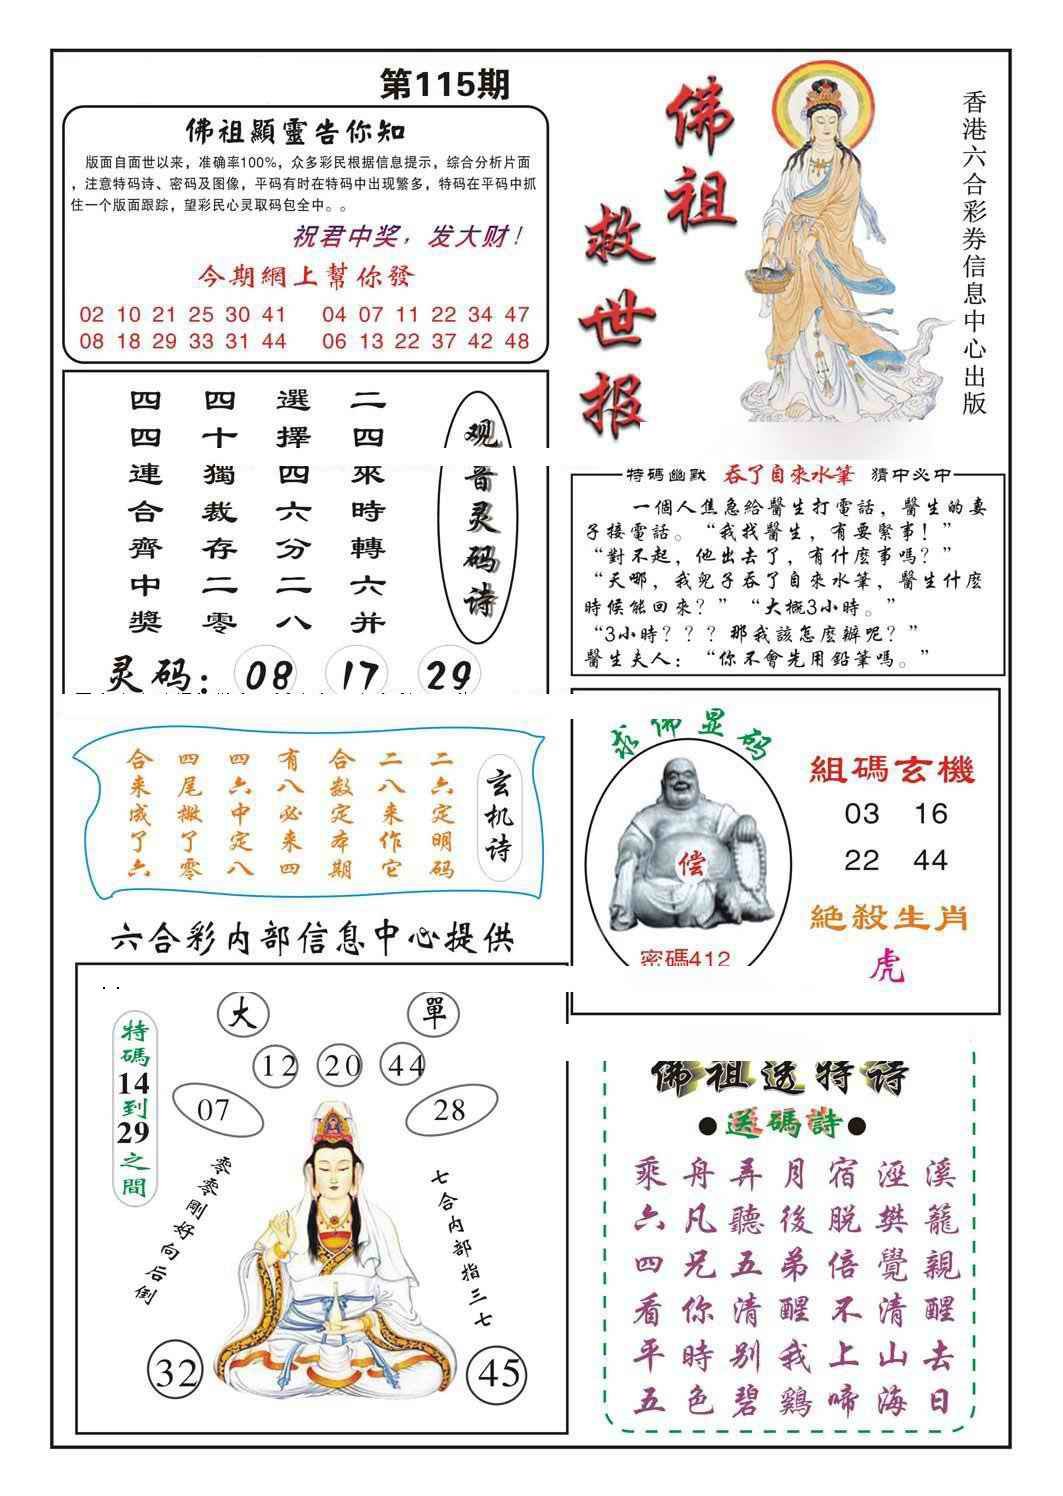 第115期
佛祖顯靈告你知
版面自面世以来，准确率100%，众多彩民根据信息提示，综合分析片面
，注意特码诗、密码及图像，平码有时在特码中出现繁多，特码在平码中抓
住一个版面跟踪，望彩民心灵取码包全中。。
祝君中奖，发大财！
今期網上幫你發
02 10 21 25 30 41 04 07 11 22 34 47
08 18 29 33 31 44 06 13 22 37 42 48
佛祖
救世报
香港六合彩券信息中心出版
观音灵码诗
二四來時轉六并
選擇四六分二八
四十獨裁存二零
四四連合齊中獎
灵码：08 17 29
特碼幽默 吞了自來水筆 猜中必中
一個人焦急給醫生打電話，醫生的妻
子接電話。“我找醫生，有要緊事！”
“對不起，他出去了，有什麽事嗎？”
“天哪，我兒子吞了自來水筆，醫生什麽
時候能回來？”“大概3小時。”
“3小時？？？那我該怎麽辦呢？”
醫生夫人：“你不會先用鉛筆嗎。”
玄机诗
二六定明码
二八来作它
合数定本期
有八必来四
四六中定八
四尾撇了零
合来成了六
六合彩内部信息中心提供
求佛显码
偿
密碼412
組碼玄機
03 16
22 44
絕殺生肖
虎
特碼14到29之間
大 單
12 20 44
07 28
零零剛好向后倒
七合内部指三七
32 45
佛祖透特诗
●送碼詩●
乘舟弄月宿涇溪
六凡聽後脫樊籠
四兄五弟倍覺親
看你清醒不清醒
平時別我上山去
五色碧鷄啼海日